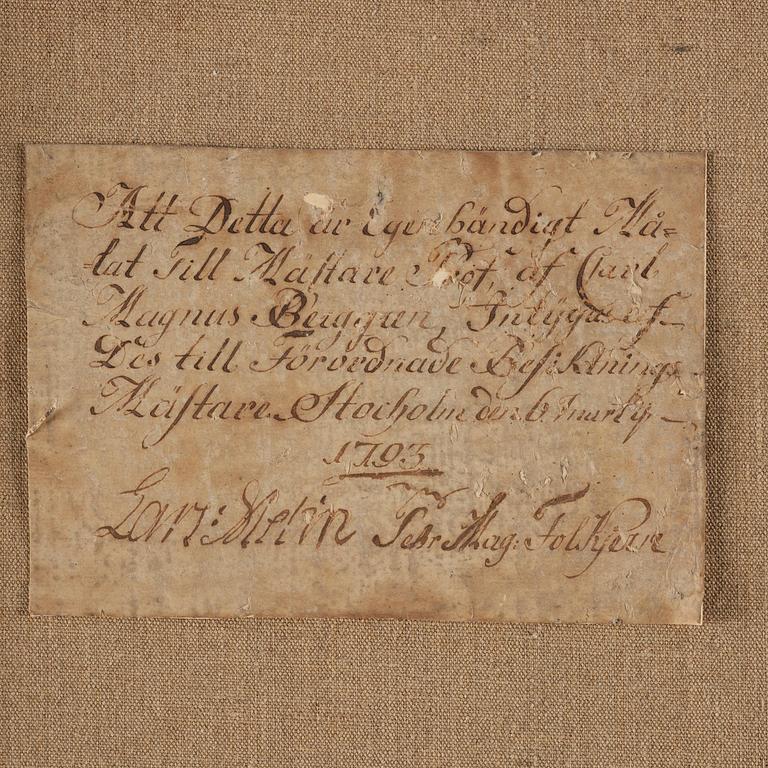 Att Detta är Egenhändigt Må=
lat Till Mästare Prof, af Carl
Magnus Berggren, Intygas af
Des till Förordnade Besiktnings
Mästare Stocholm den 6 Marty
1793
Lar: Pehr Mag: Folkjerne